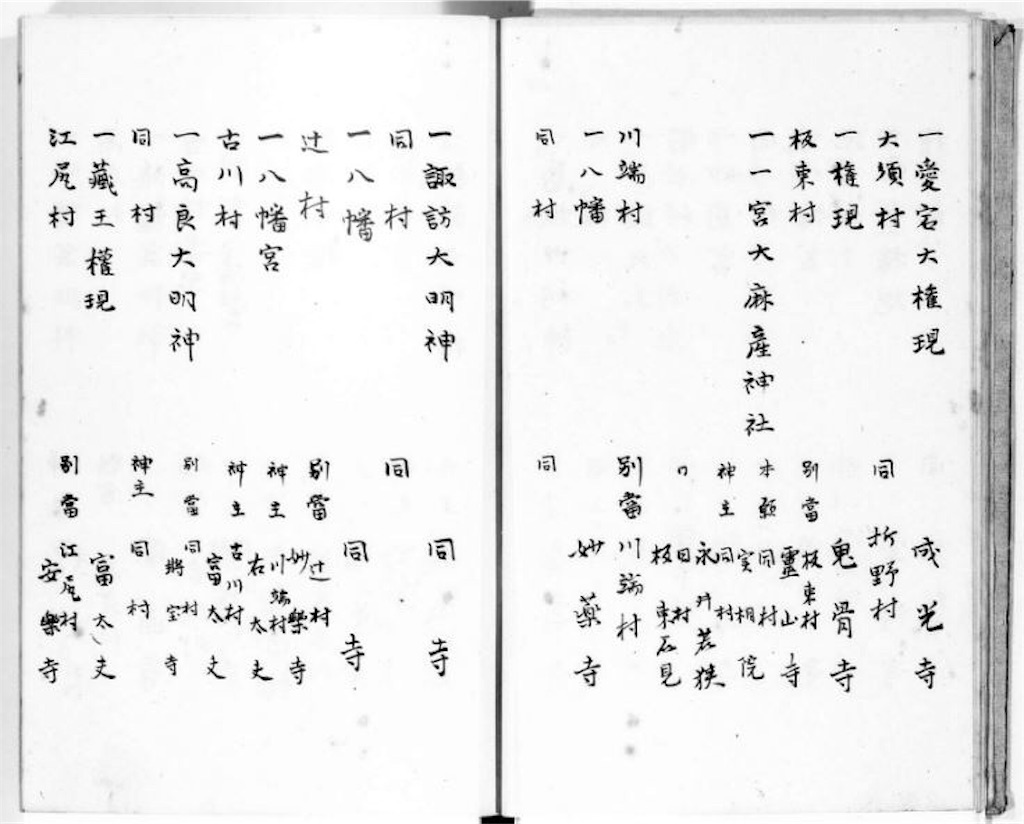 一愛宕大権現 成光寺
大須村 同 折野村
一権現 鬼骨寺
板東村 別當 板東村
靈山寺
一一宮大麻産神社 本願 同村
実相院
神主 同村
永井若狭
同村
板東石見
川端村 別當川端村
一八幡 妙薬寺
同村 同
一諏訪大明神 同寺
同村 同
一八幡 同寺
辻村 別當 辻村
妙樂寺
一八幡宮 神主 川端村
右太夫
古川村 神主 古川村
富太夫
一高良大明神 別當 同村
將宝寺
同村 神主 同村
一藏王權現 富太夫
江尻村 別當 江尻村
安樂寺